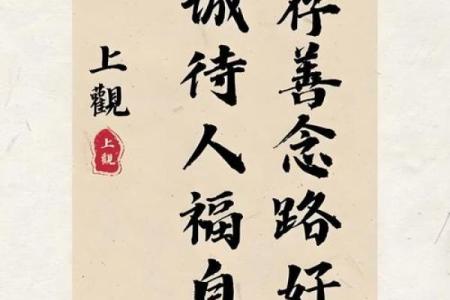 存善念路好
诚待人福自
上觀
上觀